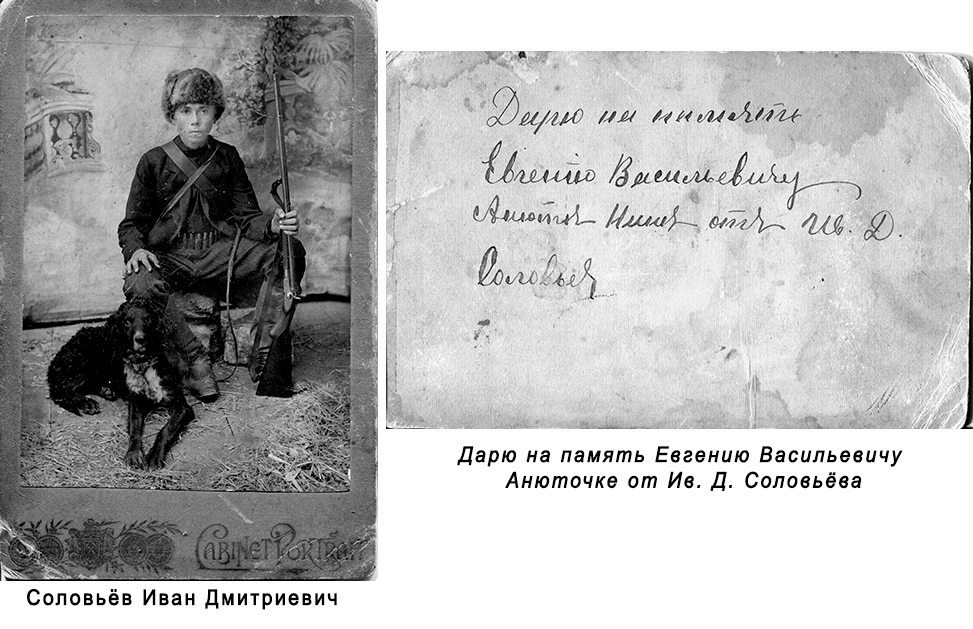 CABINET PORTRAI
Соловьёв Иван Дмитриевич
Дарю на память
Евгенію Васильевичу
отъ Ив. Д.
Соловьев
Дарю на память Евгению Васильевичу
Анюточке от Ив. Д. Соловьёва